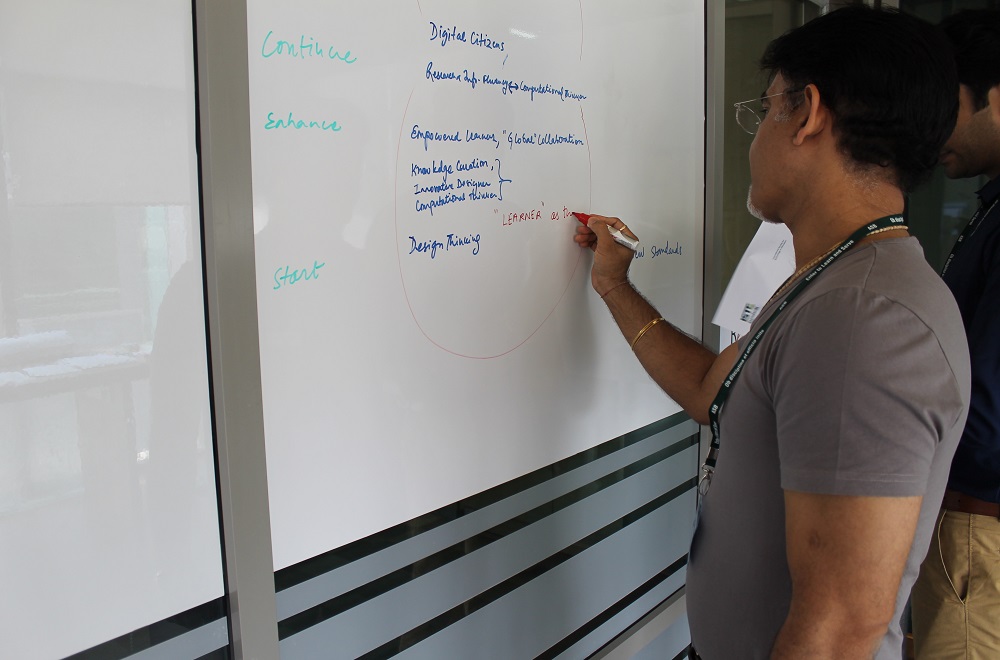 Continue
Digital Citizens,
Research Info. fluency ↔ Computational thinker
Enhance
Empowered learners, "Global" Collaboration
Knowledge Curation,
Innovative Designer
Computational thinker
"LEARNER" as
Design Thinking
Standards
Start